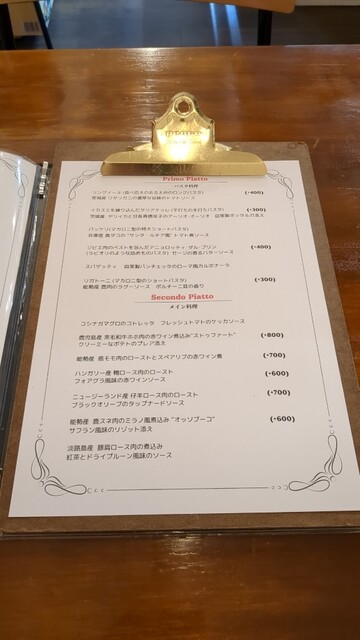 Primo Piatto
パスタ料理
(+400)
(+300)
パッケリ(マカロニ型の特大ショートパスタ)
ジビエ肉のペーストを包んだアニョロッティ ダル プリン (+400)
(ラビオリのような詰めものパスタ) セージの香るバターソース
スパゲッティ 自家製パンチェッタのローマ風カルボナーラ
リガトーニ(マカロニ型のショートパスタ) (+300)
能勢産 鹿肉のラグーソース ポルチーニ茸の香り
Secondo Piatto
メイン料理
コシナガマグロのコトレッタ フレッシュトマトのケッカソース
鹿児島産 黒毛和牛ホホ肉の赤ワイン煮込み"ストゥファート" (+800)
クリーミーなポテトのプレア添え
能勢産 鹿モモ肉のローストとスペアリブの赤ワイン煮 (+700)
ハンガリー産 鴨ロース肉のロースト (+600)
フォアグラ風味の赤ワインソース
ニュージーランド産 仔羊ロース肉のロースト (+700)
ブラックオリーブのタップナードソース
能勢産 鹿スネ肉のミラノ風煮込み"オッソブーコ" (+600)
サフラン風味のリゾット添え
淡路島産 豚肩ロース肉の煮込み
紅茶とドライプルーン風味のソース